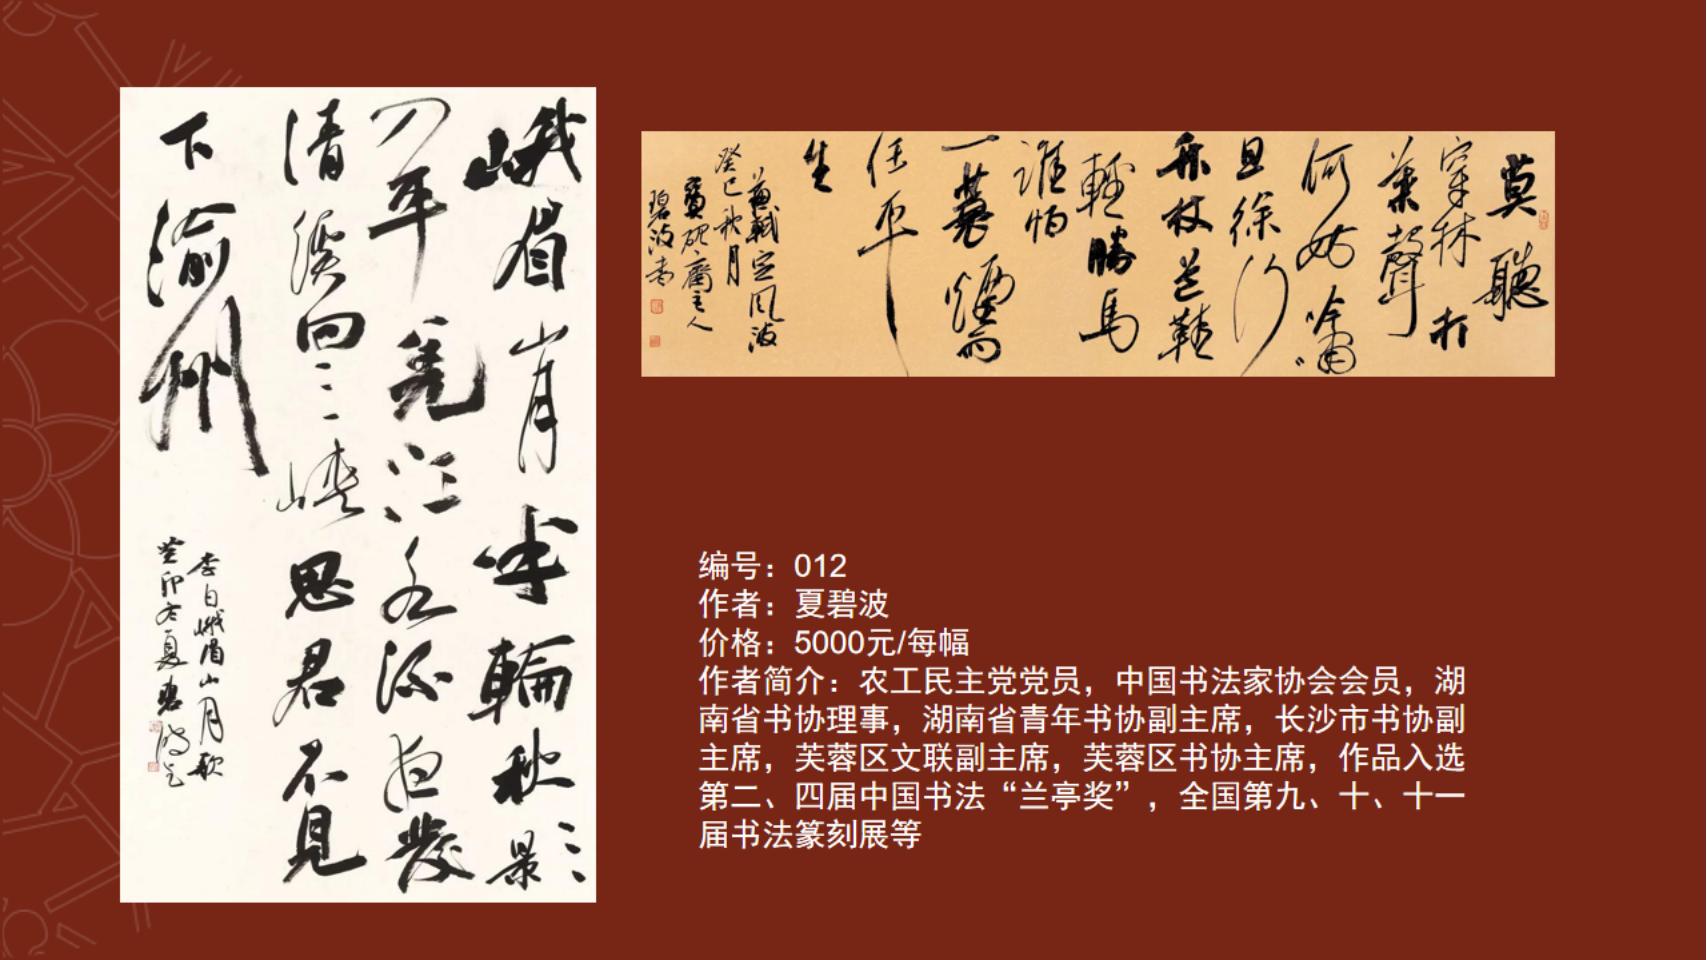 峨眉山月半輪秋影
入平羌江水流夜發
清溪向三峽思君不見
下渝州
李白峨眉山月歌
莫聽
穿林打
葉聲
何妨吟嘯
且徐行
竹杖芒鞋
輕勝馬
誰怕
一蓑煙雨
任平
生
蘇軾定風波
癸巳秋月
碧波書
编号：012
作者：夏碧波
价格：5000元/每幅
作者简介：农工民主党党员，中国书法家协会会员，湖
南省书协理事，湖南省青年书协副主席，长沙市书协副
主席，芙蓉区文联副主席，芙蓉区书协主席，作品入选
第二、四届中国书法“兰亭奖”，全国第九、十、十一
届书法篆刻展等